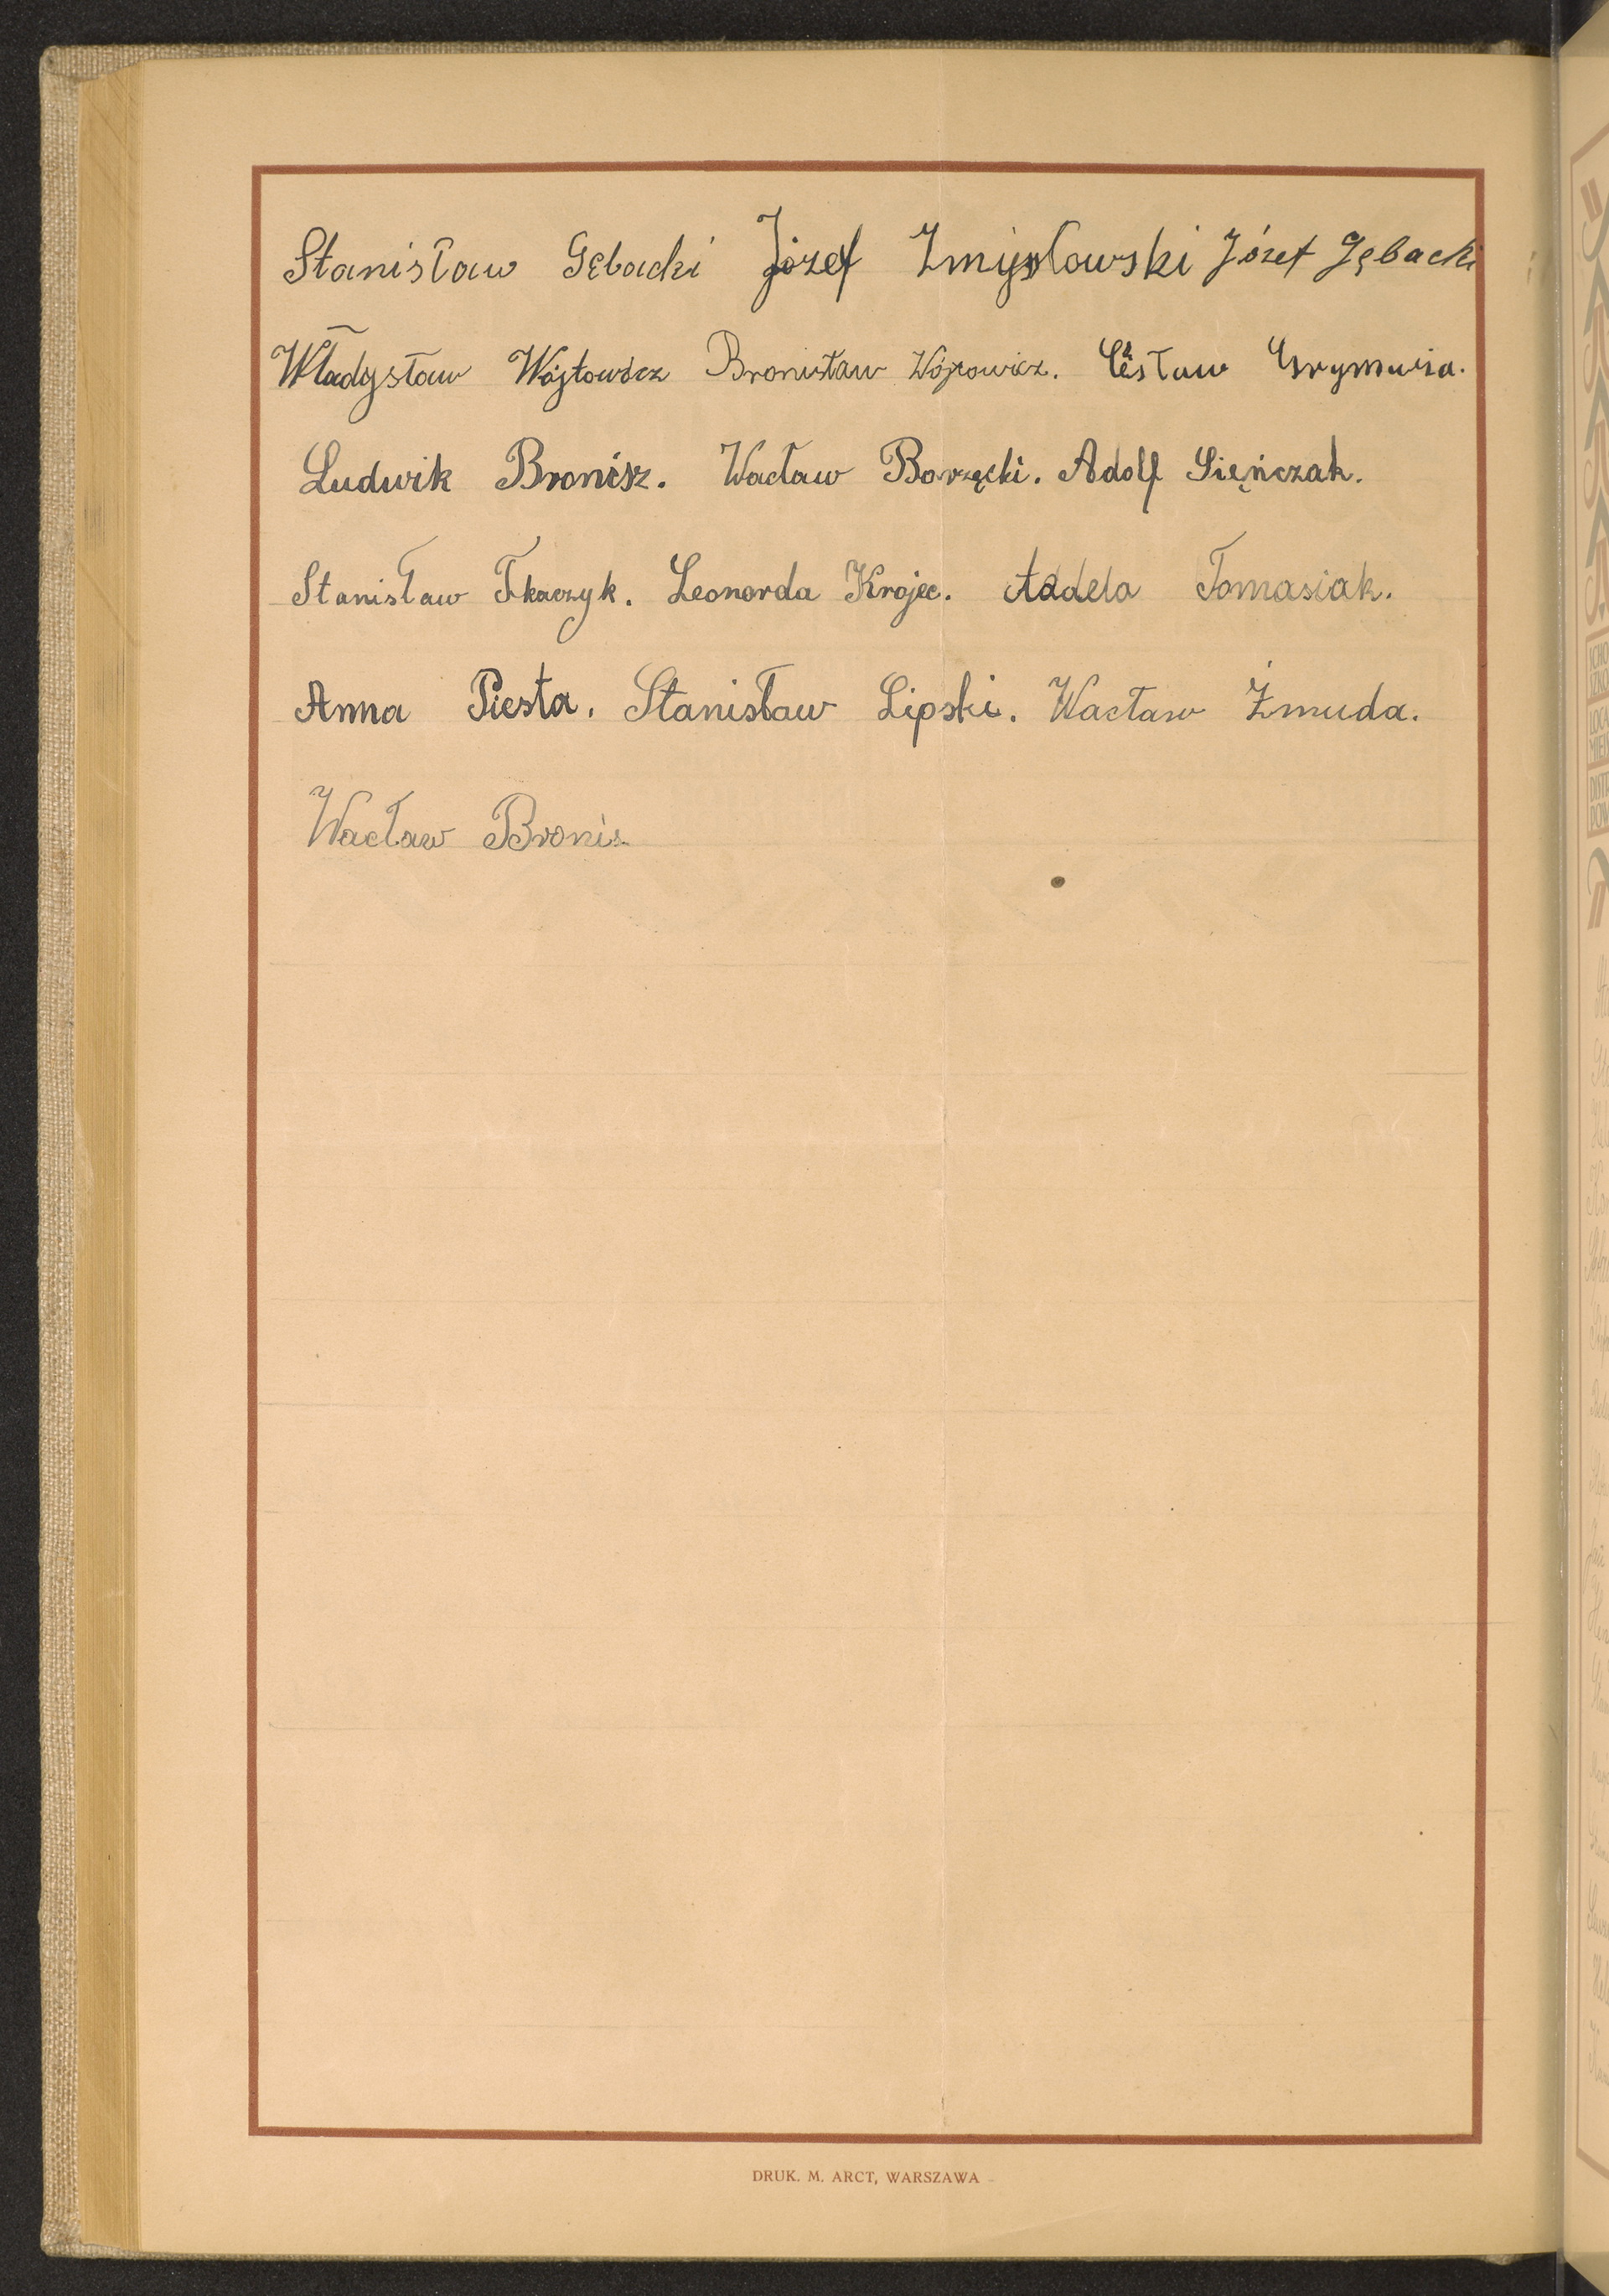 Stanisław Gębacki Józef Zmysłowski Józef Gębacki
Władysław Wójtowicz Bronisław Wójtowicz. Czesław
Ludwik Bronisz. Wacław Borzęcki. Adolf Sieńczak.
Stanisław Tkaczyk. Leonarda Krajec. Adela Tomasiak.
Anna Piesta. Stanisław Lipski. Wacław Żmuda.
Wacław Bronis
DRUK. M. ARCT, WARSZAWA